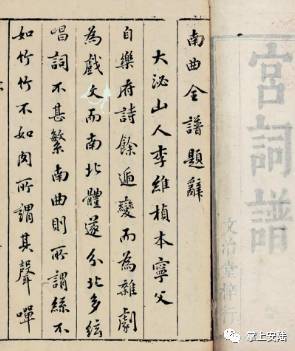 南曲全譜題辭
大泌山人李維楨本寧父
自樂府詩餘遞變而為雜劇
為戲文而南北體遂分北多絃
唱詞不甚繁南曲則所謂絲不
如竹竹不如肉所謂其聲嘽
宮詞譜
文治堂梓行
掌上安陆